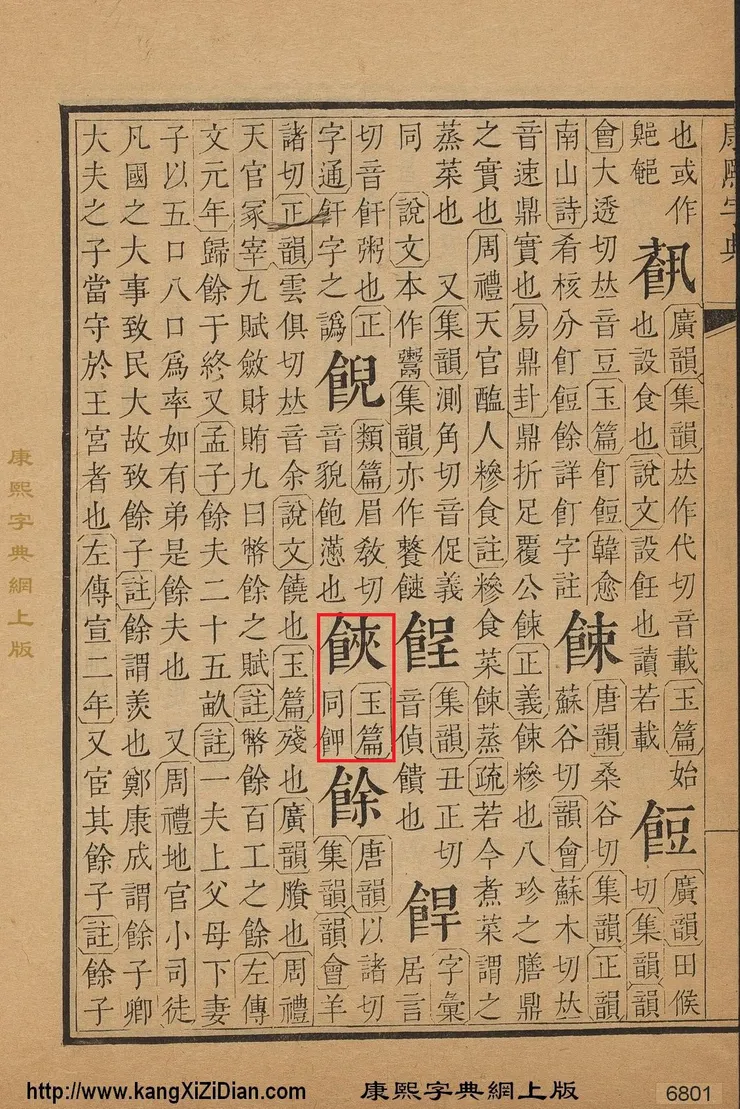 康熙字典
也或作
廣韻集韻𠀤作代切音載玉篇始
也設食也說文設飪也讀若載
餖
廣韻田候
切集韻韻
會大透切𠀤音豆玉篇飣餖韓愈
南山詩肴核分飣餖餘詳飣字註
餗
唐韻桑谷切集韻正韻
蘇谷切韻會蘇木切𠀤
音速鼎實也易鼎卦鼎折足覆公餗正義餗糝也八珍之膳鼎
之實也周禮天官醢人糝食註糝食菜餗蒸疏若今煮菜謂之
蒸菜也 又集韻測角切音促義
同 說文本作 集韻亦作
集韻丑正切
音偵饋也
字彙
居言
切音飦粥也正
字通飦字之譌
類篇眉敎切
音貌飽懣也
玉篇
同
餘
唐韻以諸切
集韻韻會羊
諸切正韻雲俱切𠀤音余說文饒也玉篇殘也廣韻賸也周禮
天官冢宰九賦斂財賄九曰幣餘之賦註幣餘百工之餘左傳
文元年歸餘于終又孟子餘夫二十五畝註一夫上父母下妻
子以五口八口爲率如有弟是餘夫也 又周禮地官小司徒
凡國之大事致民大故致餘子註餘謂羨也鄭康成謂餘子卿
大夫之子當守於王宮者也左傳宣二年又宦其餘子註餘子
康熙字典網上版
http://www.kangXiZiDian.com
康熙字典網上版
6801